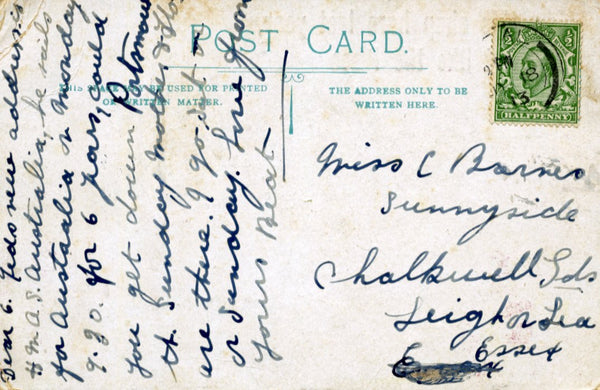 POST CARD.
THIS SPACE MAY BE USED FOR PRINTED
OR WRITTEN MATTER.
THE ADDRESS ONLY TO BE
WRITTEN HERE.
½ ½
HALFPENNY
Dear C. Feds new address is
H.M.A.S. Australia, he sails
for Australia on Monday
9.30. for 6 years, could
you get down Portsmouth
St. Sunday Mother & Flo
are there. I go Sat or
Sunday. Love from
Yours Beat
Miss C Barnes
Sunnyside
Chalkwell Gds
Leigh on Sea
Essex